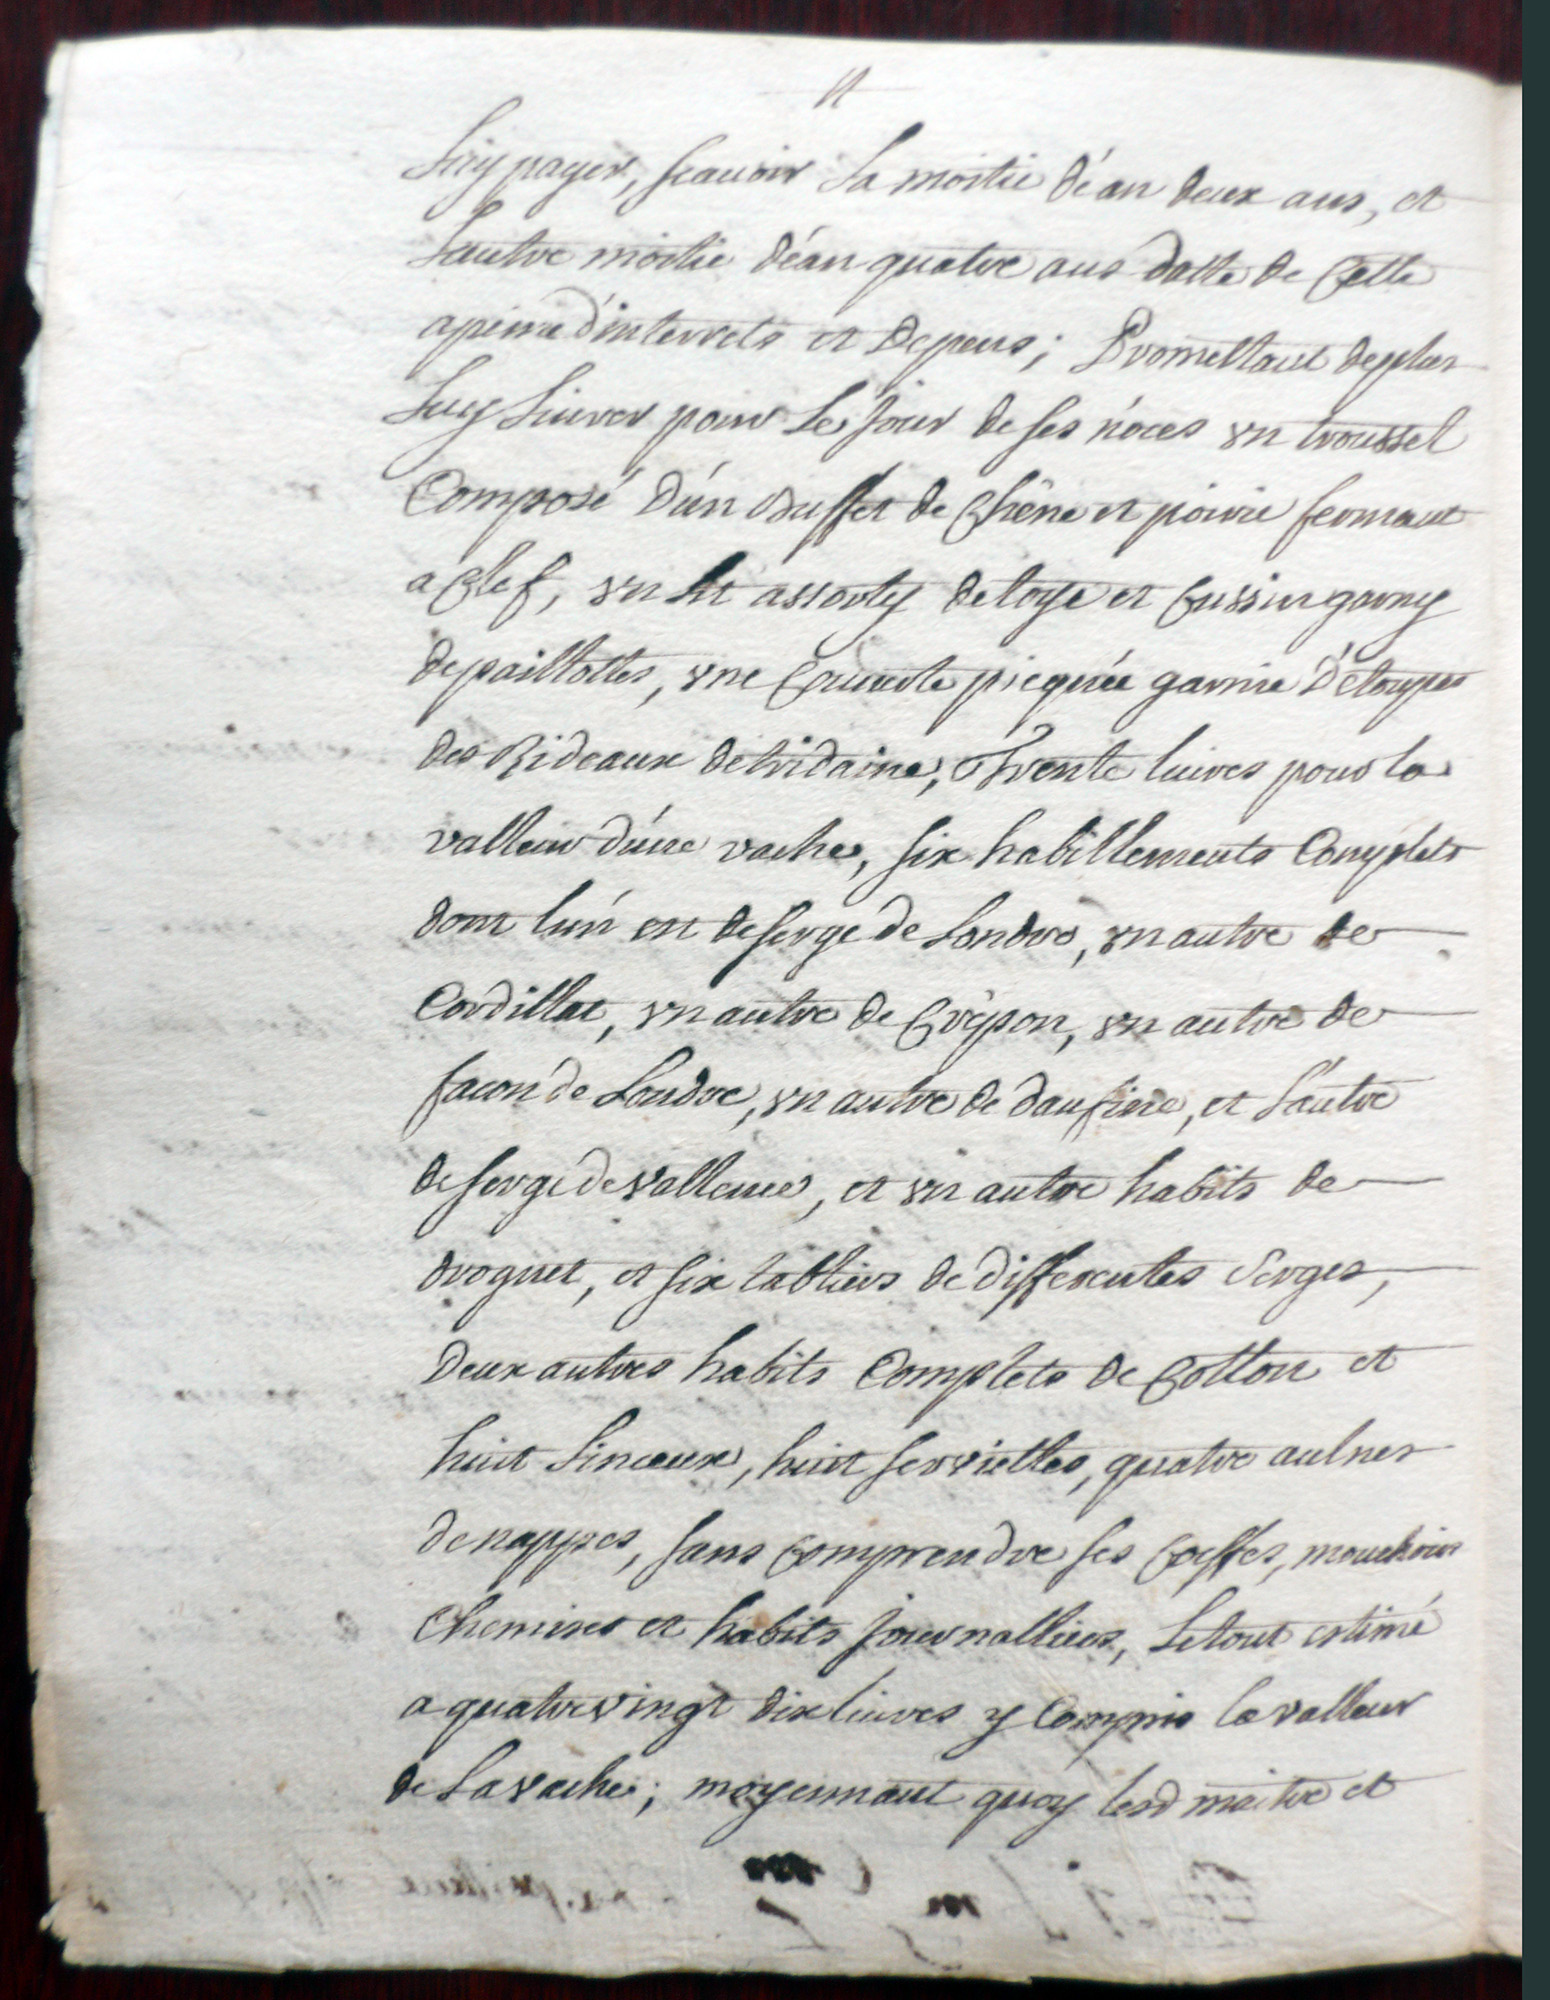 Luy payer, scauoir La moitie d'éan deux ans, et
Lautre moitie d'éan quatre ans datte de Cette
a peine d'interrets et depens; Promettant deplus
Luy Liurer pour Le jour de ses nóces vn troussel
Composé d'ún Buffet de Chêne et poirie fermant
a Clef, vn lit assorty detoye et Cussin garny
de paillottes, vne Couuerte picquée garnie D'étoupes
des Rideaux detridaine, Trente liures pour la
valleur d'úne vache, six habillements Complets
dont lún est de serge de Londre, vn autre de
Cordillat, vn autre de Crépon, vn autre de
facon de Londre, vn autre de daufine, et L'autre
de serge de vallence, et vn autre habits de
droguet, et six tabliers de differentes Serges,
Deux autres habits Complets de Cotton et
huit Linceux, huit serviettes, quatre aulnes
de nappes, sans Comprendre ses Coeffes, mouchoirs
Chemises et habits journalliers, Le tout estimé
a quatre vingt dix liures y Compris la valleur
de La vache; moyennant quoy lesd maitre et